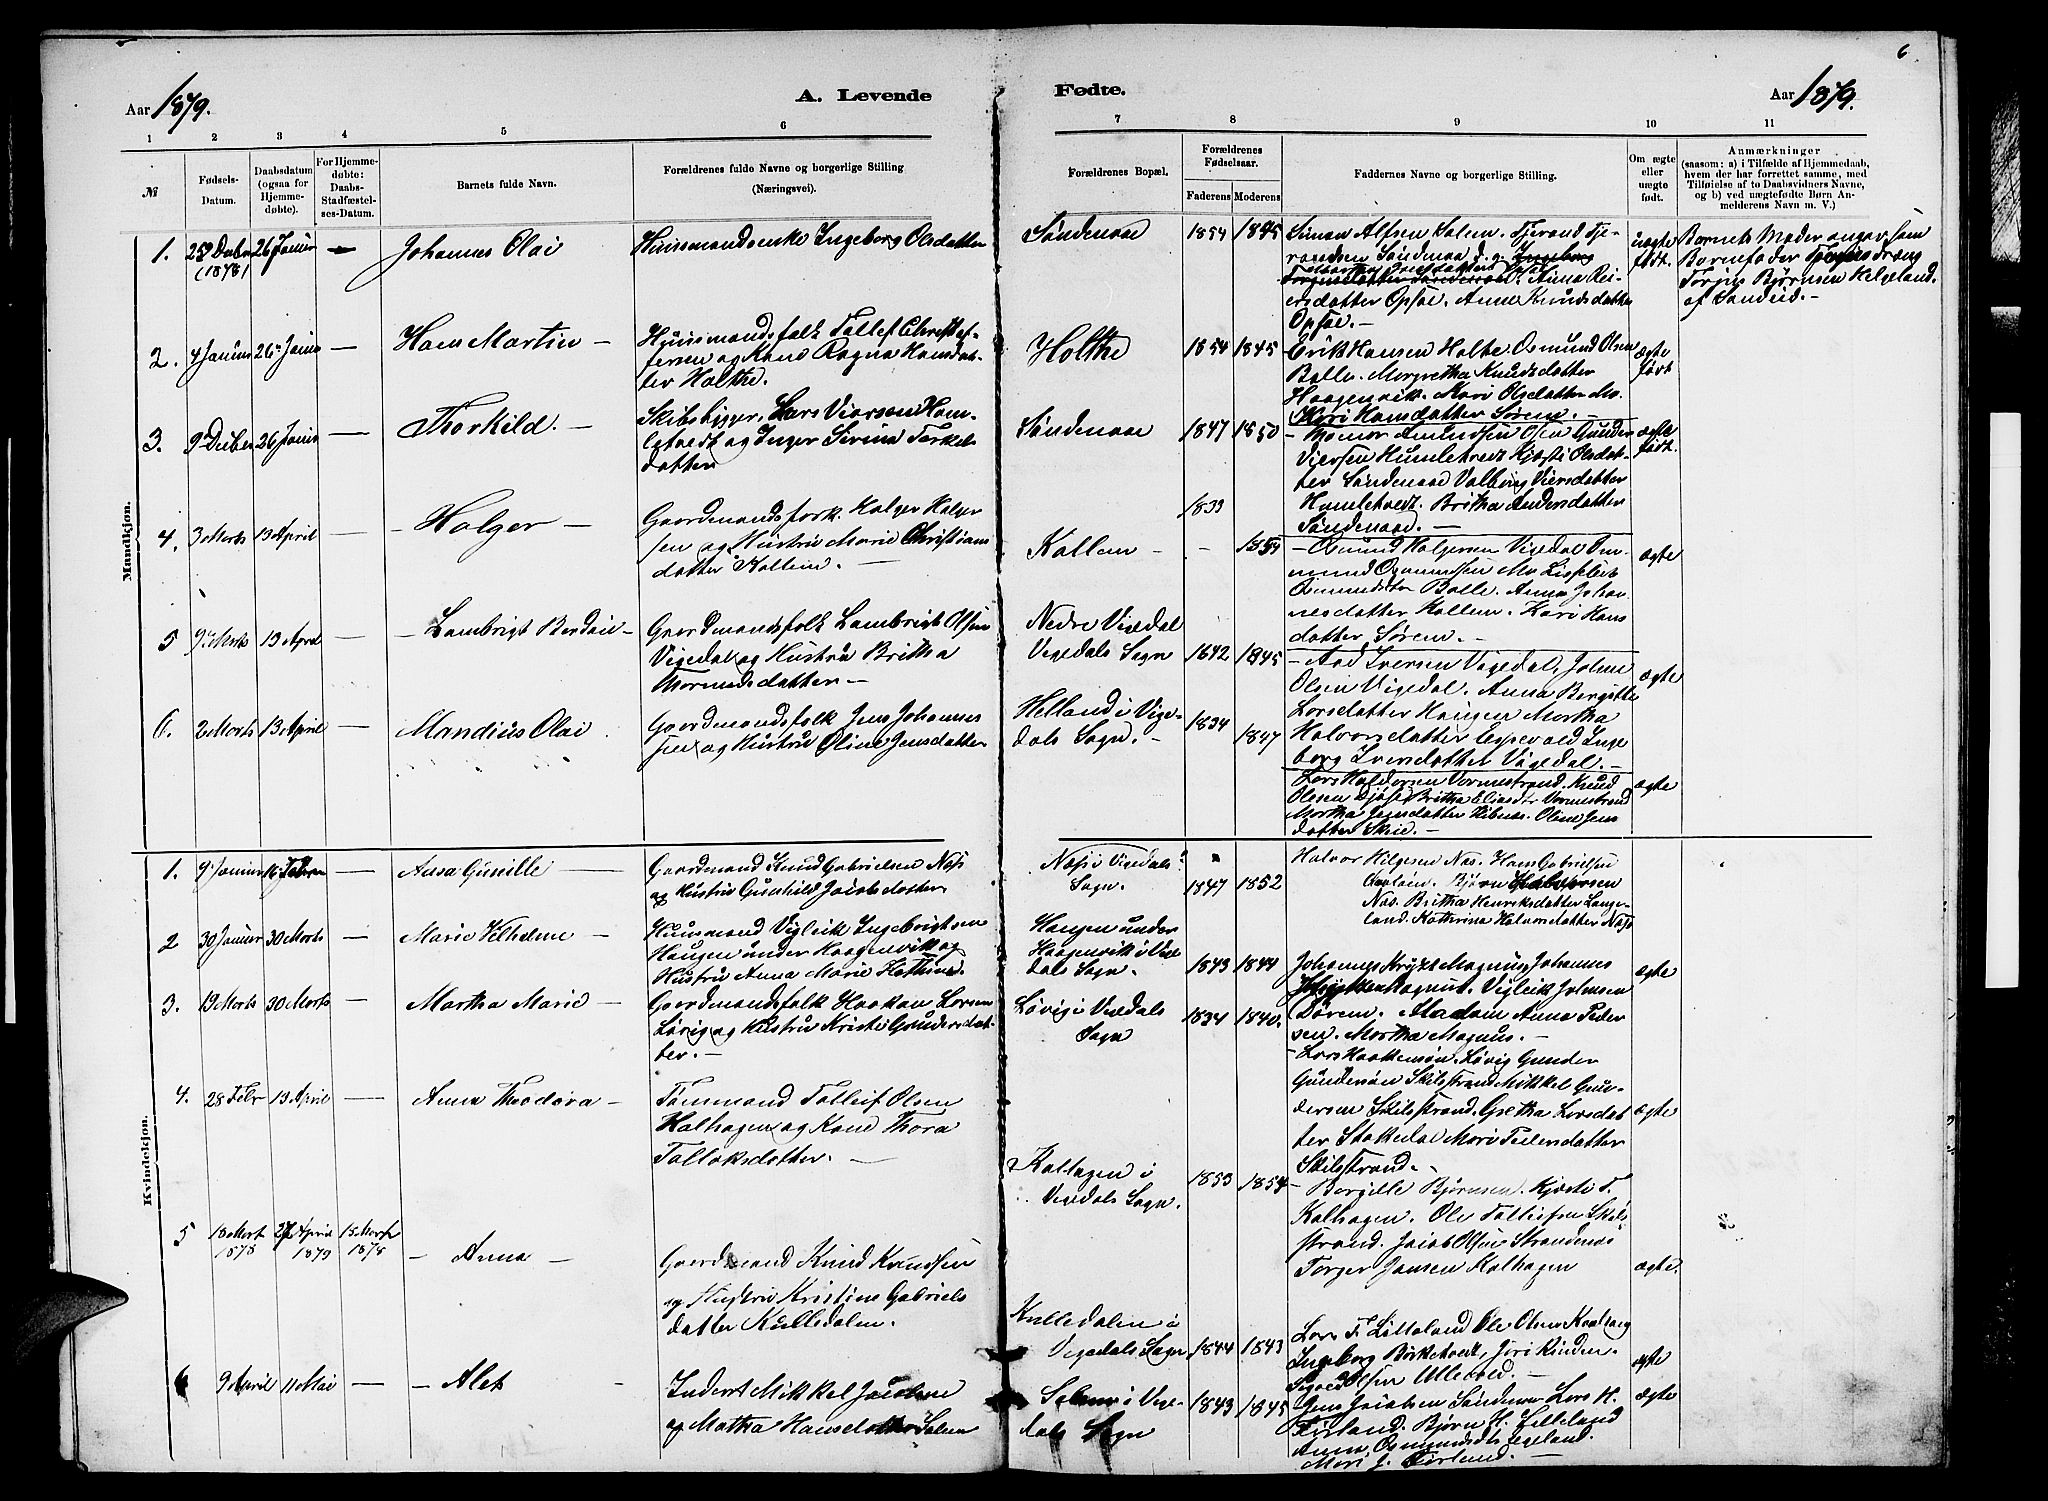 6
Aar 1879.
A. Levende
Fødte.
Aar 1879.
1 2 3 4 5 6 7 8 9 10 11
№
Fødsels-
Datum.
Daabsdatum
(ogsaa for
Hjemme-
døbte).
For Hjemme-
døbte:
Daabs-
Stadfæstel-
ses-Datum.
Barnets fulde Navn.
Forældrenes fulde Navne og borgerlige Stilling
(Næringsvei).
Forældrenes Bopæl.
Forældrenes
Fødselsaar.
Faderens Moderens
Faddernes Navne og borgerlige Stilling.
Om ægte
eller
uægte
født.
Anmærkninger
(saasom: a) i Tilfælde af Hjemmedaab,
hvem der har forrettet samme, med
Tilføielse af to Daabsvidners Navne,
og b) ved uægtefødte Børn An-
melderens Navn m. V.)
Mandkjøn.
1. 26 Januar — Johannes Olai
(1878)
Huusmandsenke Ingeborg Olsdatter
Søndenaae 1854 1845
Simon Alfsen Kalem. Tjerand Tje-
randsen Søndenaa
Opsøe. Anne Knudsdatter
Opsøe. —
uægte
født.
Barnets Moder angav som
Barnefader
Torjus Bjørnsen Helgeland
af Sandeid. —
2. 4 Januar 26 Januar — Hans Martin —
Huusmandsfolk Tollef Christof-
fersen og Kone Ragna Hansdat-
ter Holthe.
Holthe 1854 1845
Erik Hansen Holte. Osmund Olsen
Balle. Margretha Knudsdatter
Haagenvik. Mari Olsdatter
Kari Hansdatter Sørem. —
ægte
født
3. 9 Deeber 26 Januar — Thorkild. —
Lars Viersen Ham-
letvedt og Inger Serina Torkels
datter
Søndenaae 1847 1850
Amundsen Olsen Gunder
Viersen Humletvedt Kjøsti Olsdat-
ter Søndenaae Valborg Viersdatter
Hamletvedt. Britha Andersdatter
Søndenaae. —
ægte
født.
4. 3 Marts 13 April — Holger —
Gaardmandsfolk. Holger Holger
sen og Hustru Marie Christians
datter Kallem. —
Kallem 1833 1854
Osmund Holgersen Vigedal
Balle. Anna Johan
nesdatter Kallem. Kari Hans
datter Sørem. —
ægte
5 9 Marts 13 April — Lambrigt Berdain —
Gaardmandsfolk Lambrigt Olsen
Vigedal og Hustru Britha
Thormodsdatter —
Nedre Vigedal
Vigedals Sogn 1642 1845
Aad Iversen Vigedal. Johne
Olsen Vigedal. Anna Bergitte
Larsdatter Haugen Martha
Halvorsdatter Espevold Inge
borg Iversdatter Vigedal. —
ægte
6. 2 Marts 13 April — Mandius Olai
Gaardmandsfolk Jens Johannes
sen og Hustru Oline Jensdatter
Helland i Vige-
dals Sogn. — 1834 1847
Lars Haldorsen Vormestrand. Knud
Olesen Opsøe Britha Eliasdtr Vormestrand
Martha Jensdatter Oline Jens
datter Skrie. —
ægte
Kvindekjøn.
1. 9 Januar 16 Februar Anna Gunille —
Gaardmand Knud Gabrielsen Næs
og Hustru Gunhild Jacobsdatter
Næs i Vigedals
Sogn. 1847 1852
Halvor Helgesen Næs. Hans Gabrielsen
Bjørn Halvorsen
Næs. Britha Henriksdatter Lange-
land. Kathrina Halvorsdatter Næs
2 30 Januar 30 Marts — Marie Vilhelme —
Huusmand Vigleik Ingebrigtsen
Haugen under Haagenvik og
Hustru Anna Marie Kathrine.
Haugen under
Haagenvik i Vige
dals Sogn. 1843 1844
Johannes Krydt Magnus Johannes
Vigleik Johnsen
Sørem. Madam Anna Peder
sen. Martha Magnus. —
ægte
3. 19 Marts 30 Marts — Martha Marie —
Gaardmandsfolk Haakan Larsen
Løvig og Hustru Kristi Gundersdat-
ter. —
Løvig i Vigedals
Sogn 1834 1840.
Lars Haakensøn Løvig Gunder
Gundersøn Skilstrand Mikkel Gun-
dersen Skilstrand. Gretha Larsdat
ter Stakedal Mari Pedersdatter
Skilstrand. —
ægte
4. 28 Febr 13 April — Anna Theodora —
Tømmand Tollef Olsen
Kalhagen og Kone Thora
Tolloksdatter. —
Kalhagen i
Vigedals Sogn. 1853 1854
Borgille Bjørnsen. Kjøsti T.
Kalhagen. Ole Tollefsen Skil-
strand. Jacob Olsen Strandenæs
Torger Jansen Kalhagen
ægte.
5 18 Mart 27 April 18 Mart
1878 1879 1878
— Anna —
Gaardmand Knud Knudsen
og Hustru Kristine Gabriels
datter Kulledalen.
Kulledalen i
Vigedals Sogn 1844 1843
Lars T. Litleland Ole Olsen
Ingeborg Birketvedt,
Olsen Ullevold. —
ægte
6 9 April 11 Mai — — Alet —
Inderst Mikkel Jacobsen
og Martha Hansdatter
i Vige-
dals Sogn 1843 1845
Jens Jacobsen Søndenaa Lars H.
Bjørn H. Lilleland
Anna Osmundsdtr
Mari J. —
ægte